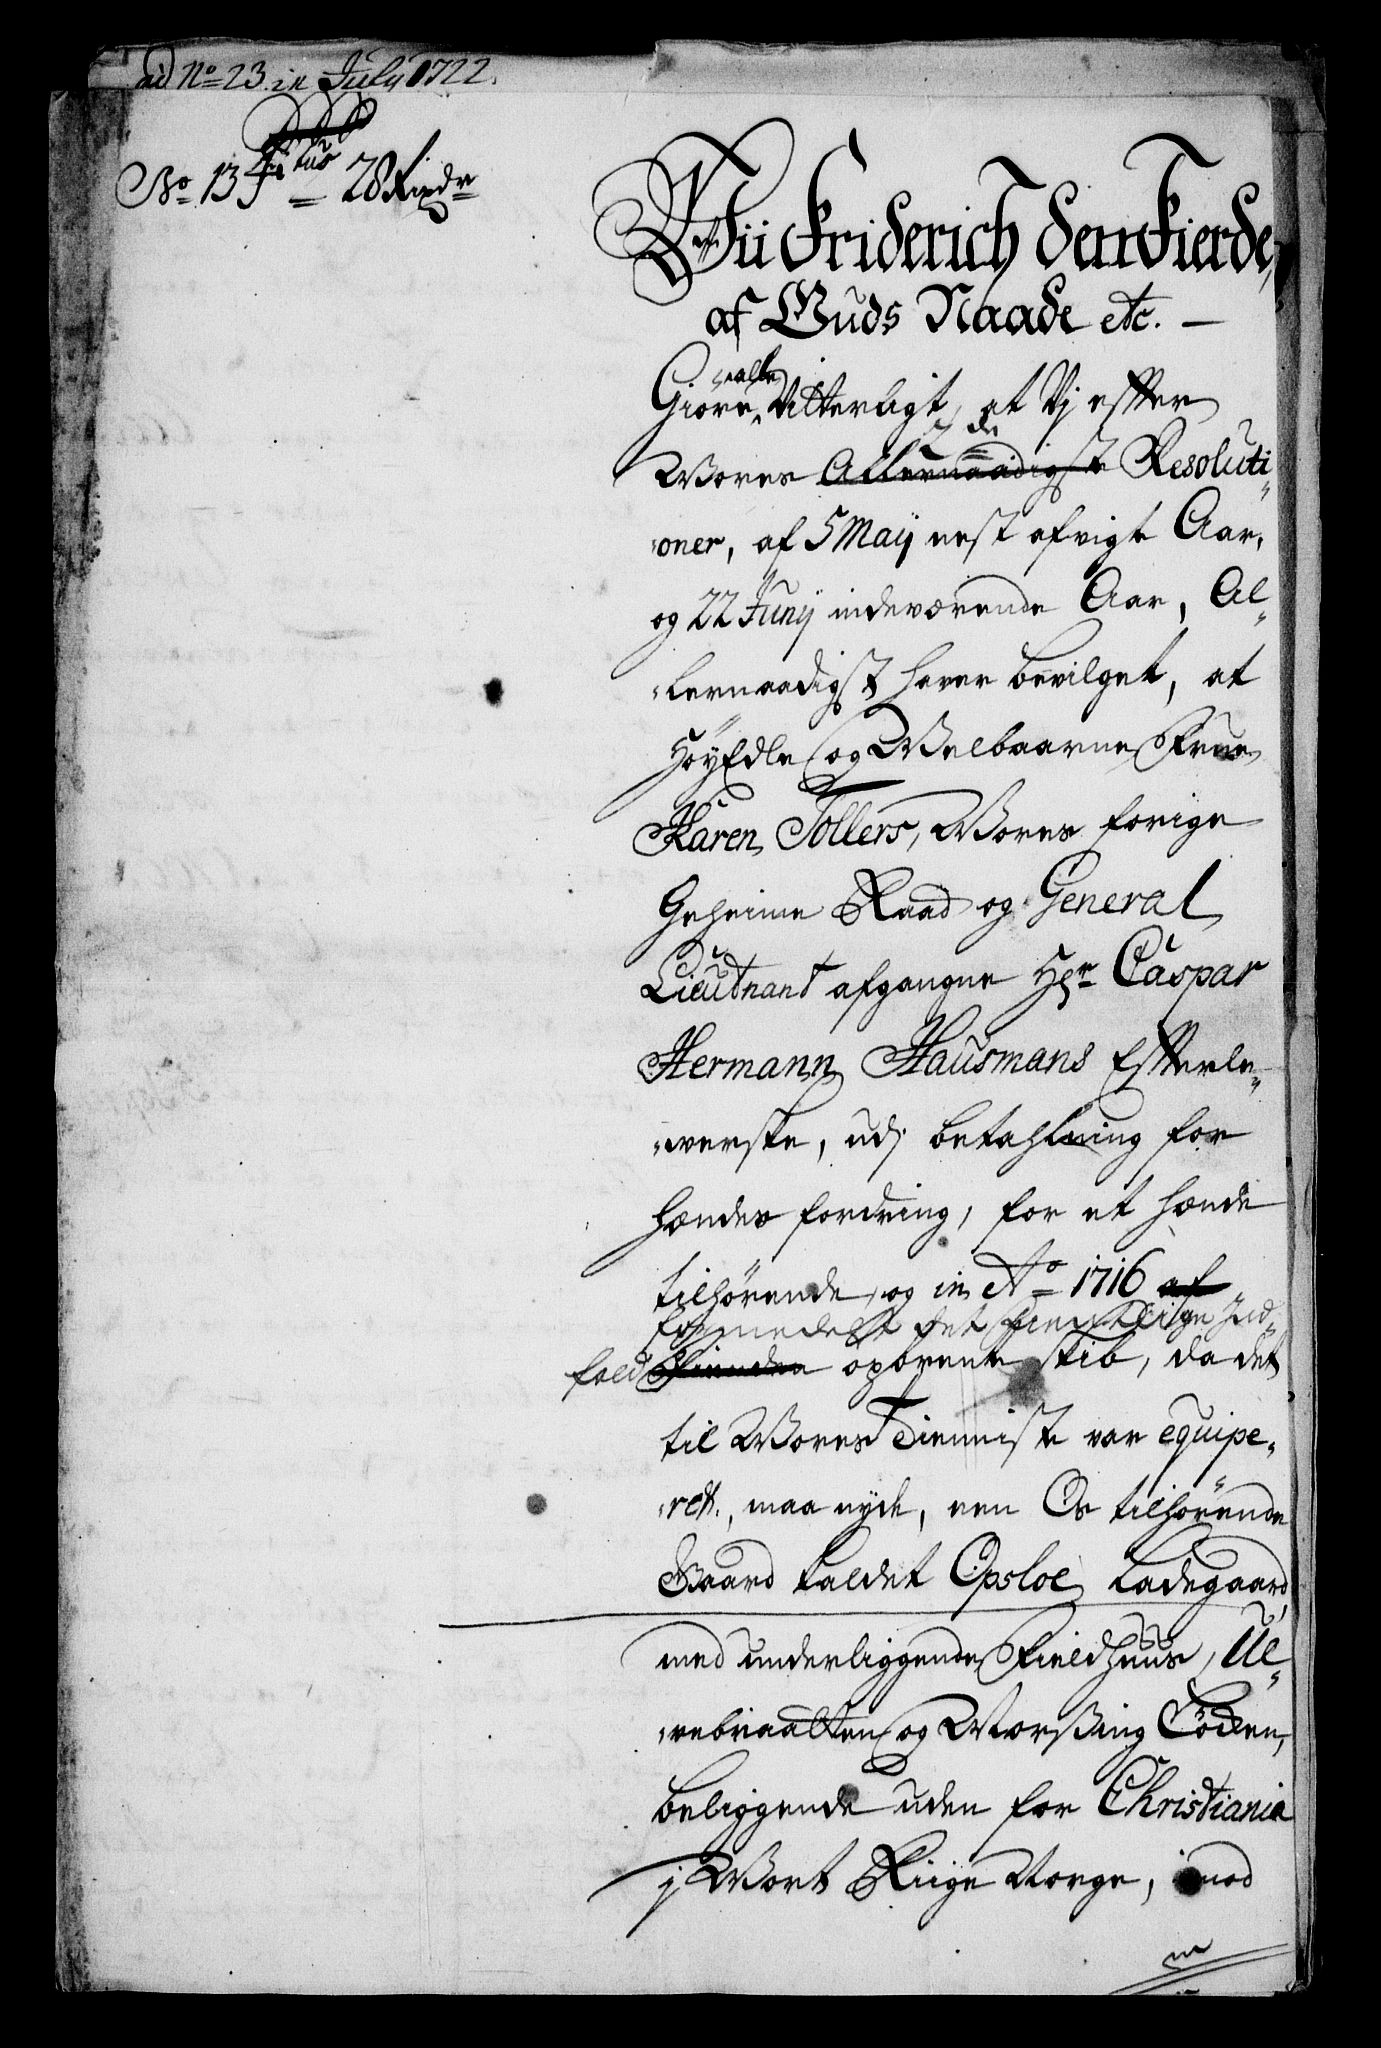 ad No 23 in July 1722.
No 13 Titus 28 Rixdr
Wii Friderich den Fierde,
af Guds Naade etc. —
Giöre alle Vitterligt, at Vj effter
Wores Allernaadigste 2de Resoluti-
oner, af 5 Maij nest afvigte Aar,
og 22 Junij indeværende Aar, Al-
lernaadigst haver bevilget, at
HöyEdle og Welbaarne Frue
Karen Tollers, Wores forige
Geheime Raad og General
Lieutnant afgangne Hr Caspar
Hermann Hausmans Effterle-
verske, udj betahlning for
hendes fordring, for et hende
tilhørende, og in Ao 1716 af
formedelst det fiendtlige Ind-
fald Fienden opbrente Skib, da det
til Wores Tienniste var equipe-
ret, maa nyde, een Os tilhørende
Gaard kaldet Opsloe Ladegaard,
med underliggende Fieldhuus, Ul-
vebraatten og Worßing Lökken,
beliggende uden for Christiania
j Wort Riige Norge, imod